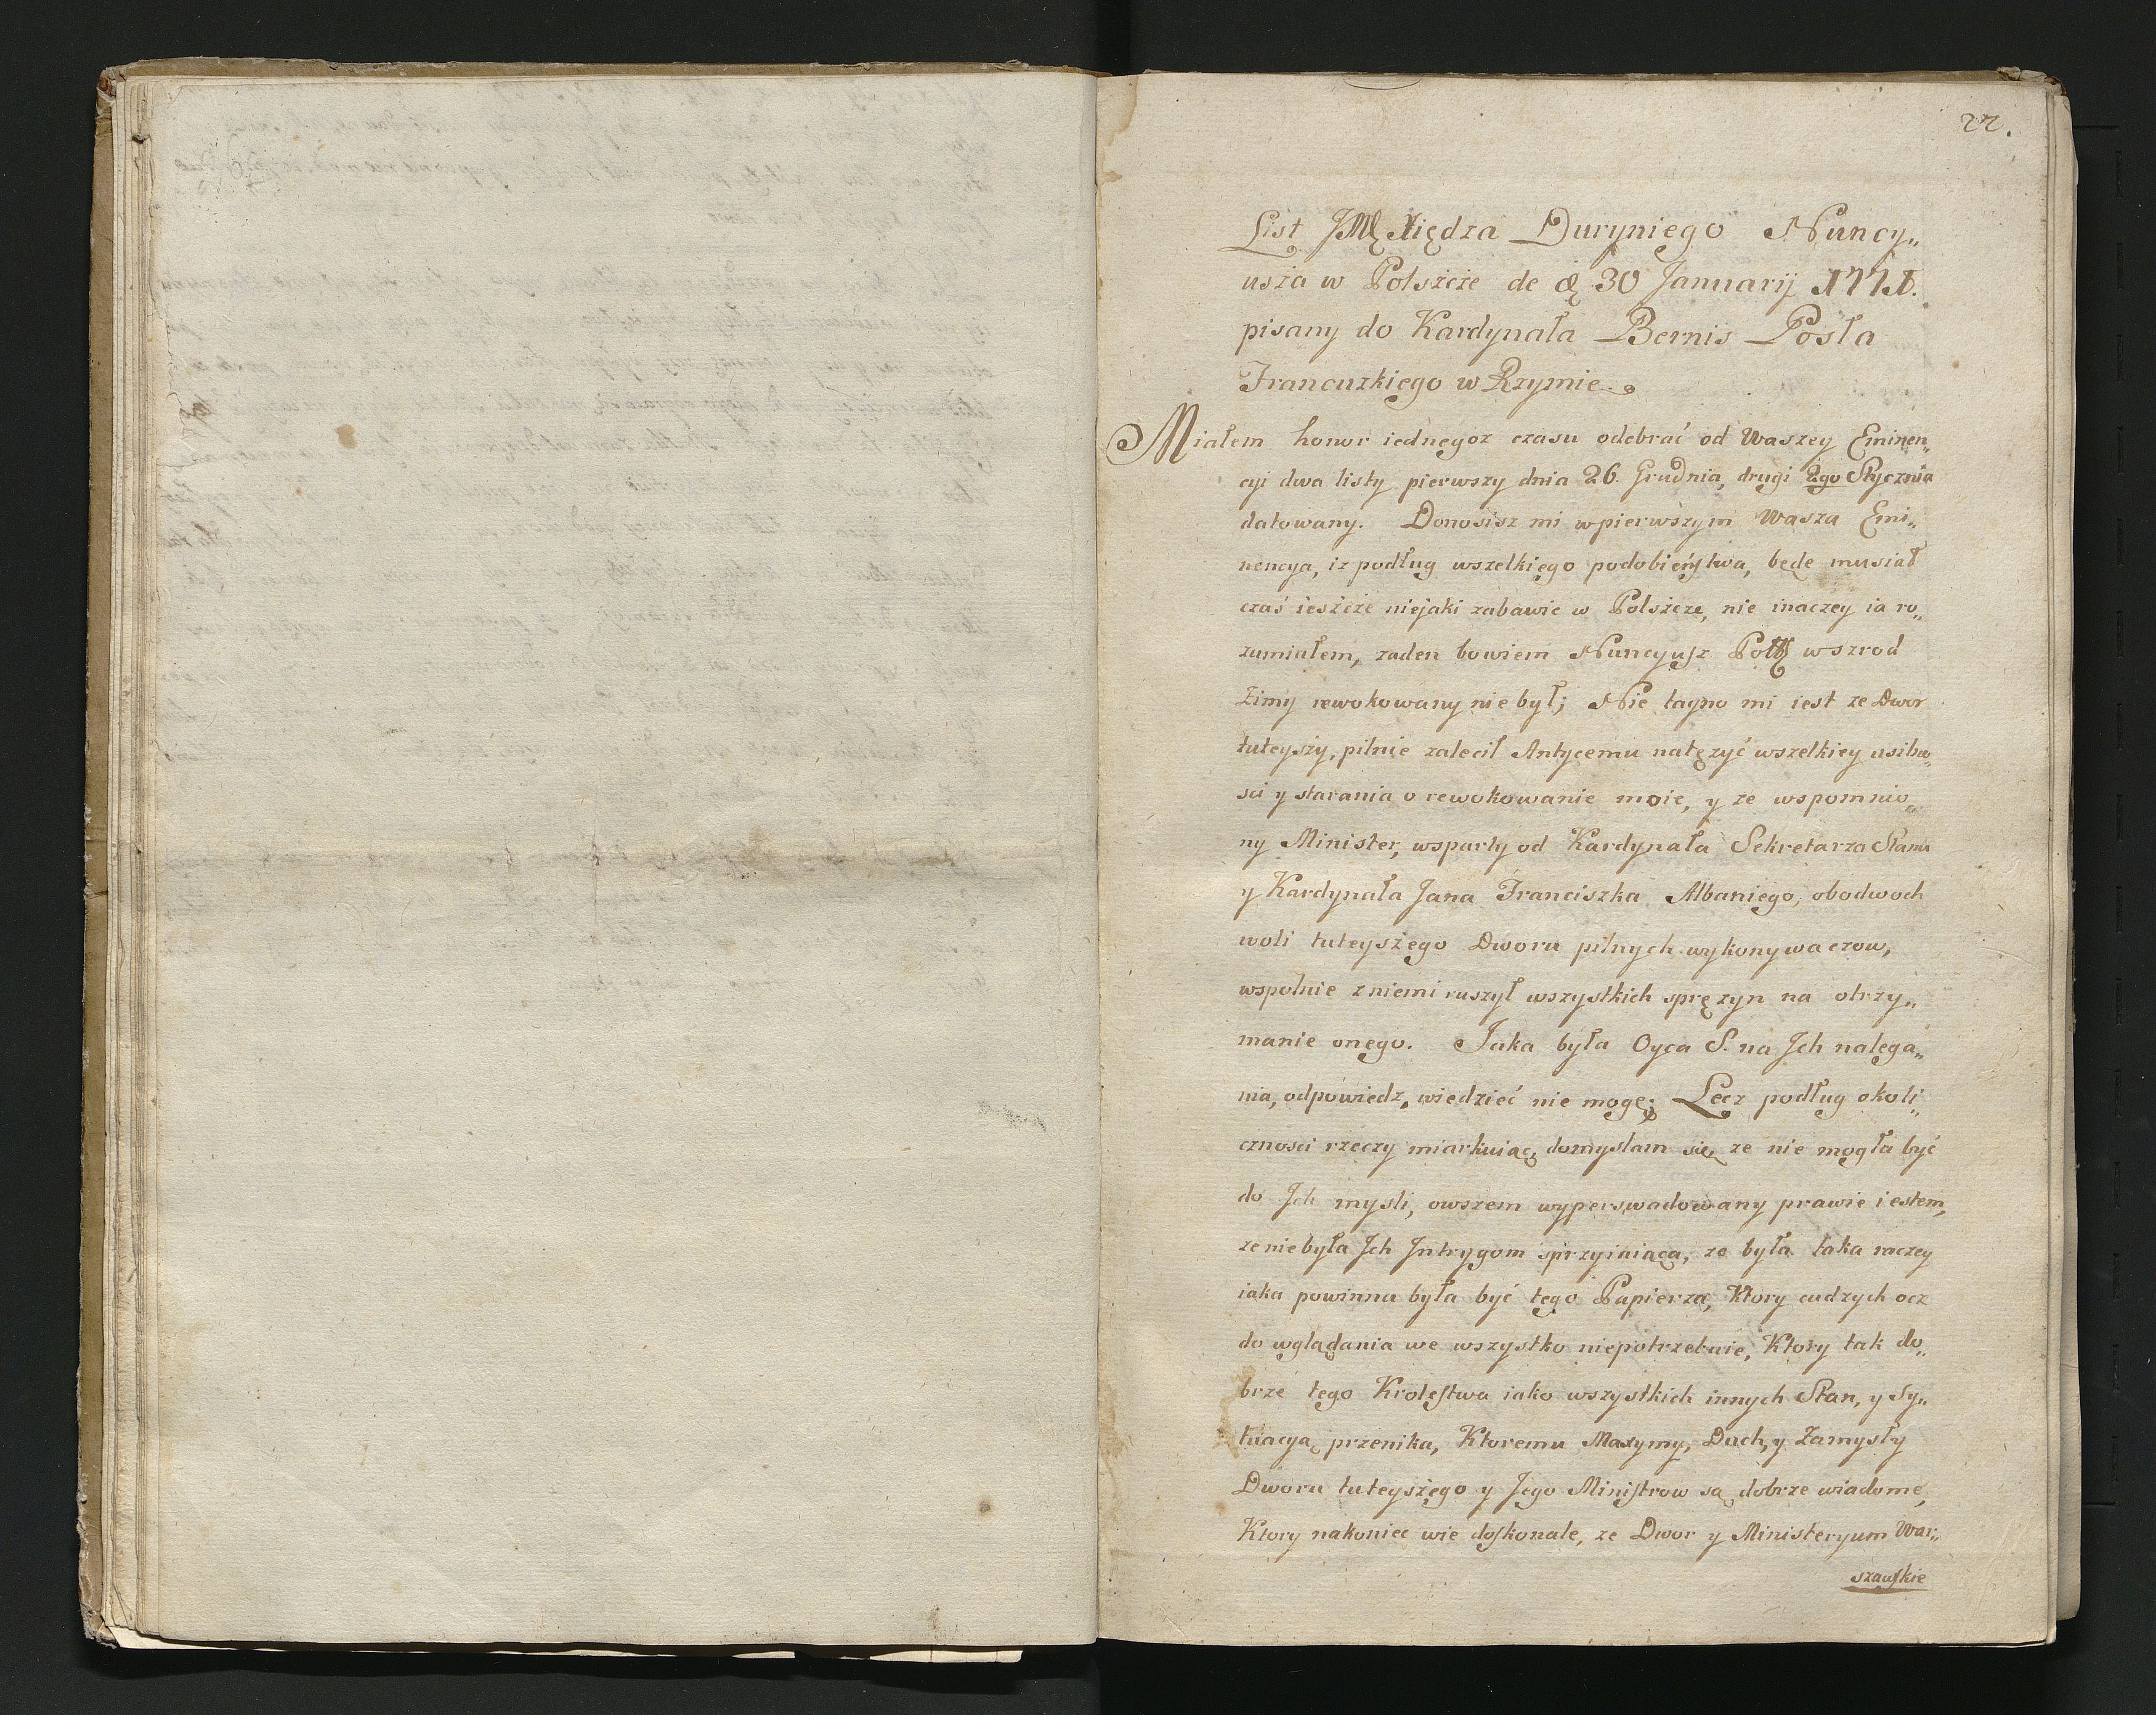 22.
List JMę Xiędza Duryniego Nuncy„
usza w Polszcze de 30 Januarij 1771.
pisany do Kardynała Bernis Posła
Francuzkięgo w Rzymie.
Miałem honor iednęgoz czasu odebrać od Waszey Eminen„
cyi dwa listy pierwszy dnia 26. Grudnia, drugi 2go Stycznia
datowany. Donosisz mi wpierwszym Wasza Emi„
nencya, iz podług wszelkięgo podobieństwa, będe musiał
czas ieszcze niejaki zabawic w Polszcze, nie inaczey ia ro„
zumiałem, zaden bowiem Nuncyusz wszrod
Zimy rewokowany nie był; Nie tayno mi iest ze Dwor
tuteyszy, pilnie zalecił Antycemu natęzyć wszelkiey usilno„
sci y starania o rewokowanie moie, y ze wspomnio„
ny Minister, wsparty od Kardynała Sekretarza Stanu
y Kardynała Jana Franciszka Albaniego, obodwoch
woli tuteyszego Dworu pilnych wykonywaczow,
wspolnie z niemi ruszył wszystkich spręzyn na otrzy„
manie onęgo. Jaka była Oyca S. na Jch nalęga„
nia, odpowiedz, wiedzieć nie mogę; Lecz podług okoli„
cznosci rzeczy miarkuiąc, domyslam się ze nie mogła być
do Jch mysli, owszem wyperswadowany prawie iestem,
ze nie była Jch Jntrygom sprzyiaiąca, ze była taka raczey
iaka powinna była być tęgo Papierza, Ktory cudzych ocz
do wglądania we wszystko niepotrzebuie, Ktory tak do„
brze tęgo Krolestwa iako wszystkich innych Stan, y Sy„
tuacyą przenika, Ktoremu Maxymy, Duch, y Zamysły
Dworu tuteyszęgo y Jęgo Ministrow są dobrze wiadome,
Ktory nakoniec wie doskonale, ze Dwor y Ministeryum War„
szawskie